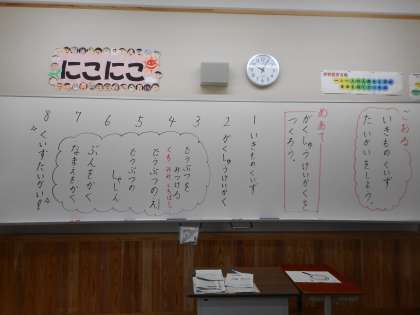 にこにこ
ごおる
いきものくいず
たいかいをしよう。
めあて
がくしゅうけいかくを
つくろう。
1 いきものくいず
2 がくしゅうけいかく
3 どうぶつを
みつける
4
5 どうぶつの
しゃしん
6 ぶんをかく
7 なまえをかく
8 くいずたいかい